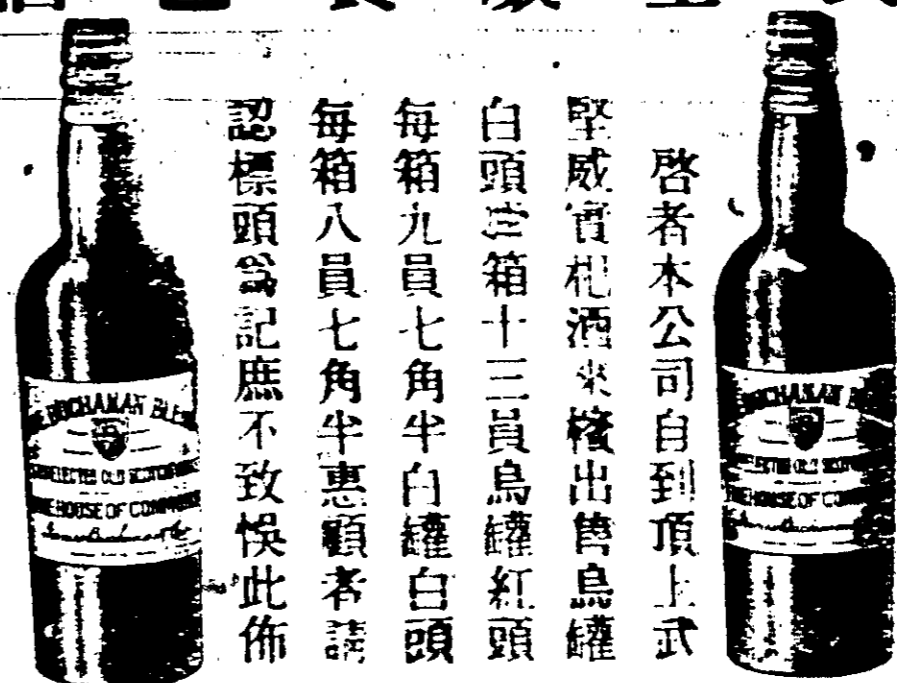 啓者本公司自到頂上武
堅威實杧酒來檳出售烏罐
白頭每箱十三員烏罐紅頭
每箱九員七角半白罐白頭
每箱八員七角半惠顧者請
認標頭爲記庶不致悞此佈
BUCHANAN BLEND
SELECTED OLD SCOTCH
HOUSE OF COMMONS
BUCHANAN
SELECTED OLD SCOTCH
HOUSE OF COMMONS